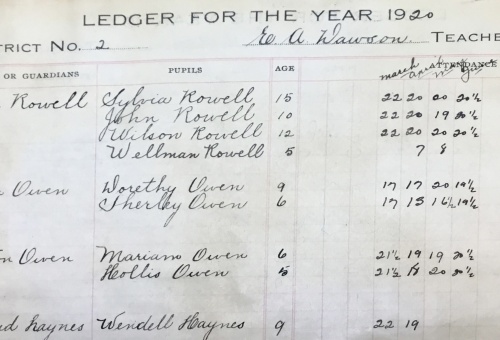 LEDGER FOR THE YEAR 1920
TRICT NO. 2 E. A. Dawson. TEACHE
OR GUARDIANS PUPILS AGE ATTENDANCE
march
Rowell Sylvia Rowell 15 22 20 20 20½
John Rowell 10 22 20 19 20½
Wilson Rowell 12 22 20 20 20½
Wellman Rowell 5 7 8
Owen Dorethy Owen 9 17 17 20 19½
Sherley Owen 6 17 15 16½ 19½
on Owen Mariano Owen 6 21½ 19 19 20½
Hollis Owen 5 21½ 18 20 20½
ed Haynes Wendell Haynes 9 22 19